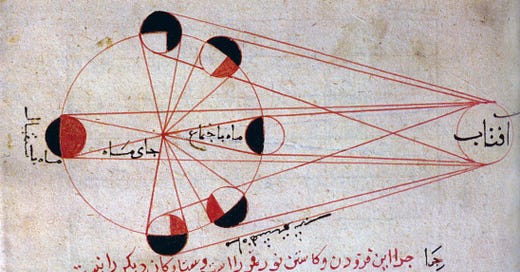 افتاب
ماه باجتماع
جای ماه
ماه باستقبال
چرا این فزودن و کاستن نور قمر را است و ستارگان دیگر را نیست